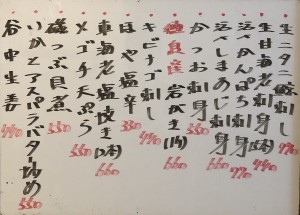 生ニタリ鯨刺し 990
生甘海老刺し
活〆かんぱち刺身 770
活〆しまあじ刺身 660
かつお刺身 550
徳島産 岩がき(1ケ) 660
キビナゴ刺し 550
ほや塩辛 330
車海老塩焼き(2本) 660
メゴチ天ぷら 550
磯つぶ貝煮 550
いかとアスパラバター炒め 550
谷中生姜 440